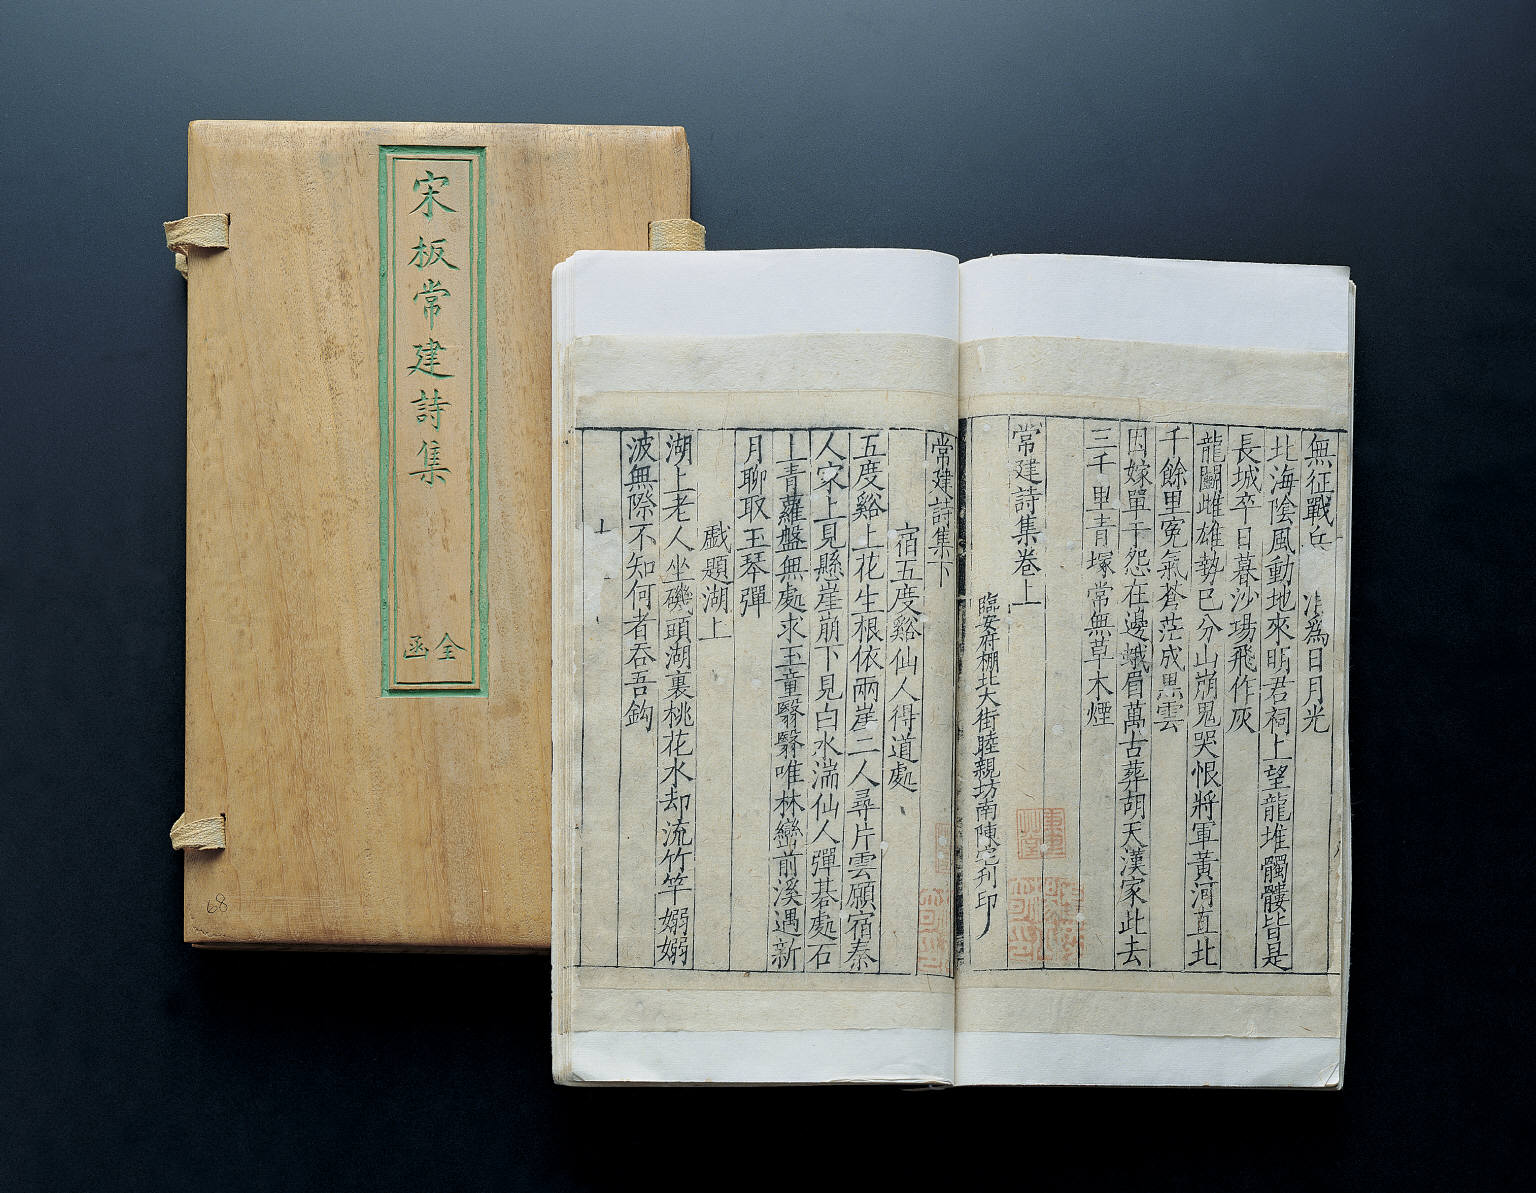 宋板常建詩集
全函
68
無征戰兵
為日月光
北海陰風動地來明君祠上望龍堆髑髏皆是
長城卒日暮沙場飛作灰
龍鬬雌雄勢已分山崩鬼哭恨將軍黃河直北
千餘里冤氣蒼茫成黑雲
因嫁單于怨在邊蛾眉萬古葬胡天漢家此去
三千里青塚常無草木煙
常建詩集卷上
臨安府棚北大街睦親坊南陳宅刊印
常建詩集下
宿五度谿仙人得道處
五度谿上花生根依兩崖二人尋片雲願宿秦
人家上見懸崖崩下見白水湍仙人彈碁處石
上青蘿盤無處求玉童翳翳唯林巒前溪遇新
月聊取玉琴彈
戲題湖上
湖上老人坐磯頭湖裏桃花水却流竹竿嫋嫋
波無際不知何者吞吾鈎